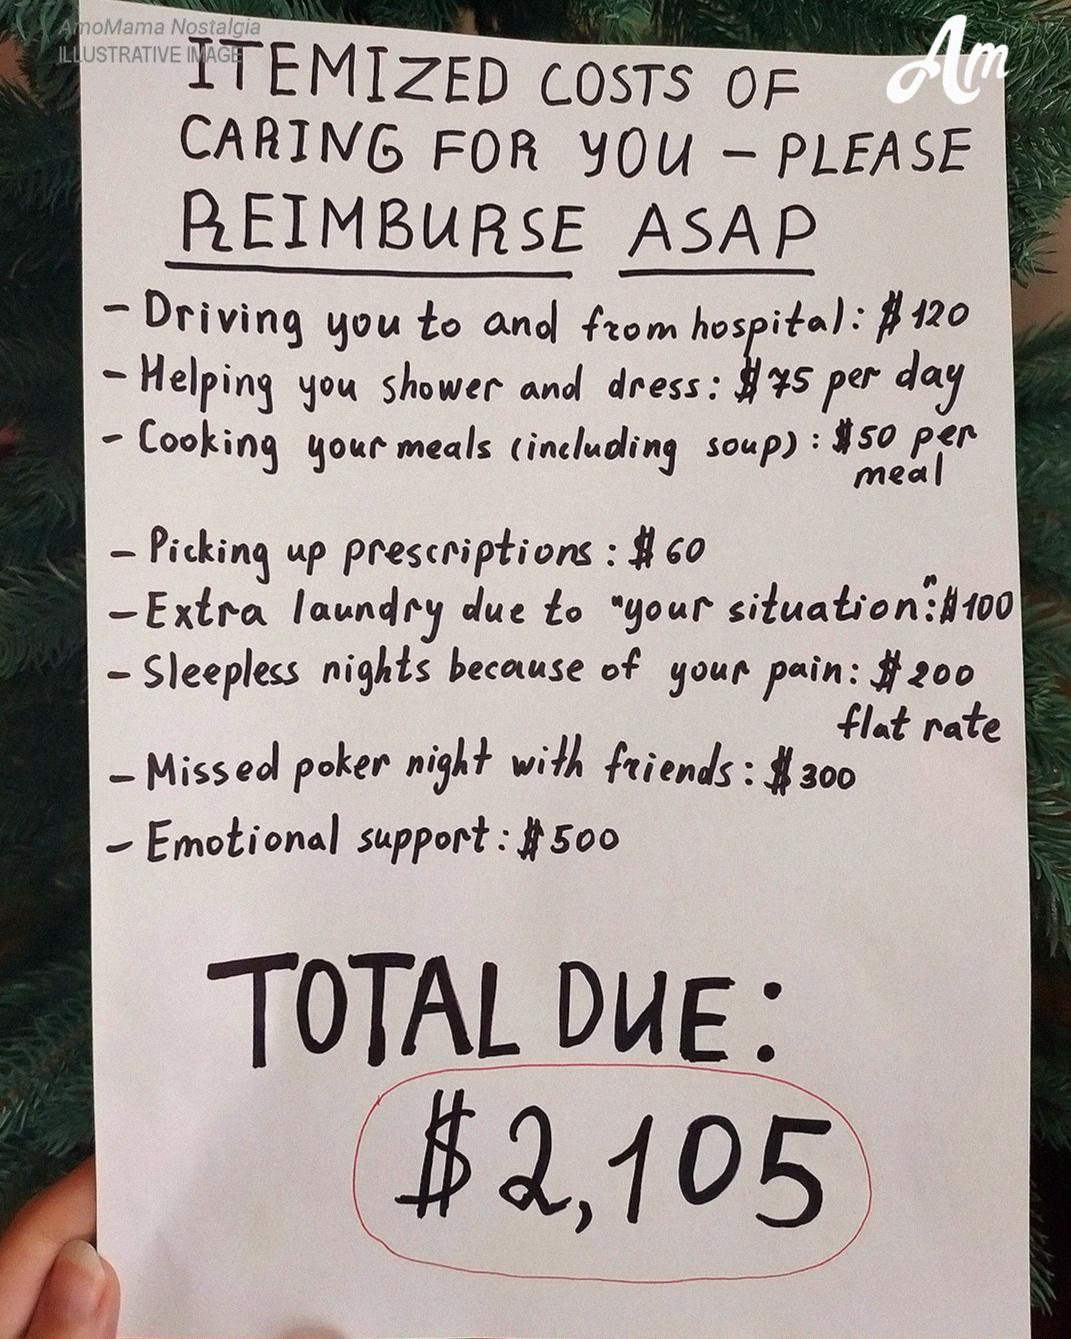 AmoMama Nostalgia
ILLUSTRATIVE IMAGE
Am
ITEMIZED COSTS OF
CARING FOR YOU – PLEASE
REIMBURSE ASAP
- Driving you to and from hospital: $120
- Helping you shower and dress: $75 per day
- Cooking your meals (including soup): $50 per
meal
- Picking up prescriptions: $60
- Extra laundry due to "your situation": $100
- Sleepless nights because of your pain: $200
flat rate
- Missed poker night with friends: $300
- Emotional support: $500
TOTAL DUE:
$2,105